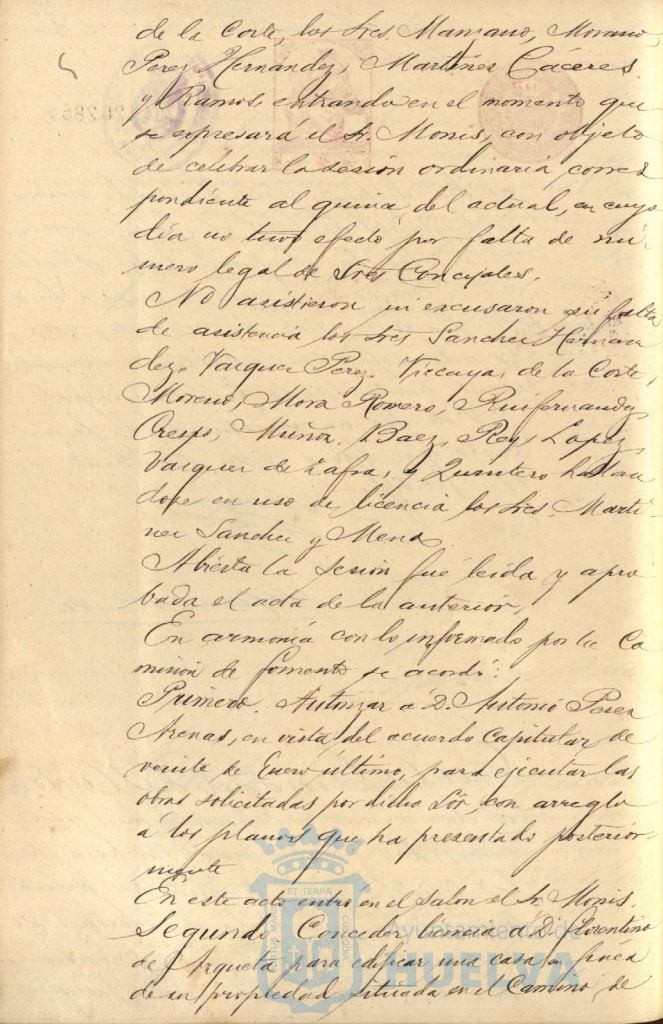 de la Corte, los Sres. Manzano, Morano,
Perez Hernandez, Martinez Cáceres
y Ramos, entrando en el momento que
se expresará el Sr. Monis, con objeto
de celebrar la sesión ordinaria, corres
pondiente al quince del actual, en cuyo
dia no tuvo efecto por falta de nú-
mero legal de Sres Concejales.
No asistieron ni excusaron su falta
de asistencia los Sres Sanchez Hernan
dez, Vazquez Perez, Vizcaya, de la Corte,
Moreno, Mora Romero, Ruifernandez,
Crespo, Muñoz, Baez, Rey, Lopez,
Vazquez de Zafra, y Quintero hallan
dose en uso de licencia los Sres. Marti-
nez Sanchez y Mena
Abierta la sesión fué leida y apro
bada el acta de la anterior,
En armonía con lo informado por la Co
misión de fomento se acordó:
Primero. Autorizar a D. Antonio Perez
Arenas, en vista del acuerdo Capitular de
veinte de Enero último, para ejecutar las
obras solicitadas por dicho Sór, con arreglo
á los planos que ha presentado posterior
mente
En este acto entra en el salon el Sr. Monis.
Segundo Conceder licencia a D. Florentino
de Azqueta para edificar una casa en finca
de su propiedad situada en el Camino de
Ayuntamiento de
HUELVA